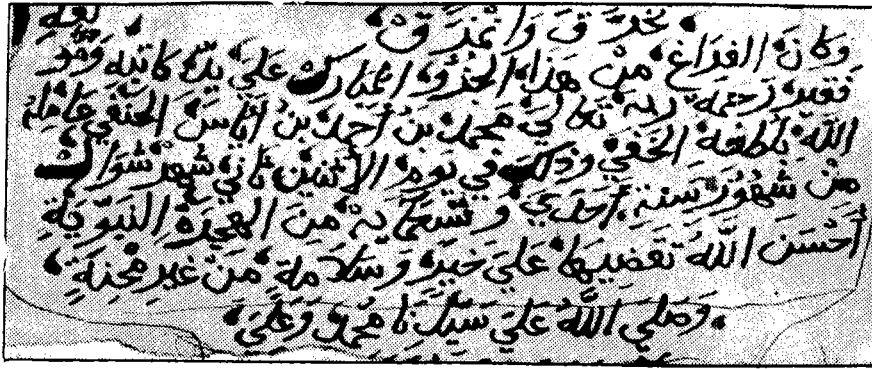 تخرق وانمزق
وكان الفراغ من هذا الجزو المبارك على يد كاتبه
فقير رحمة ربه تعالى محمد بن أحمد بن أناس الحنفي عامله
الله بلطفه الخفي وذلك في يوم الاثنين ثاني شهر شوال
من شهور سنة احدى وتسعماية من الهجرة النبوية
أحسن الله تقضيها على خير وسلامة من غير محنة
وصلى الله على سيدنا محمد وعلى